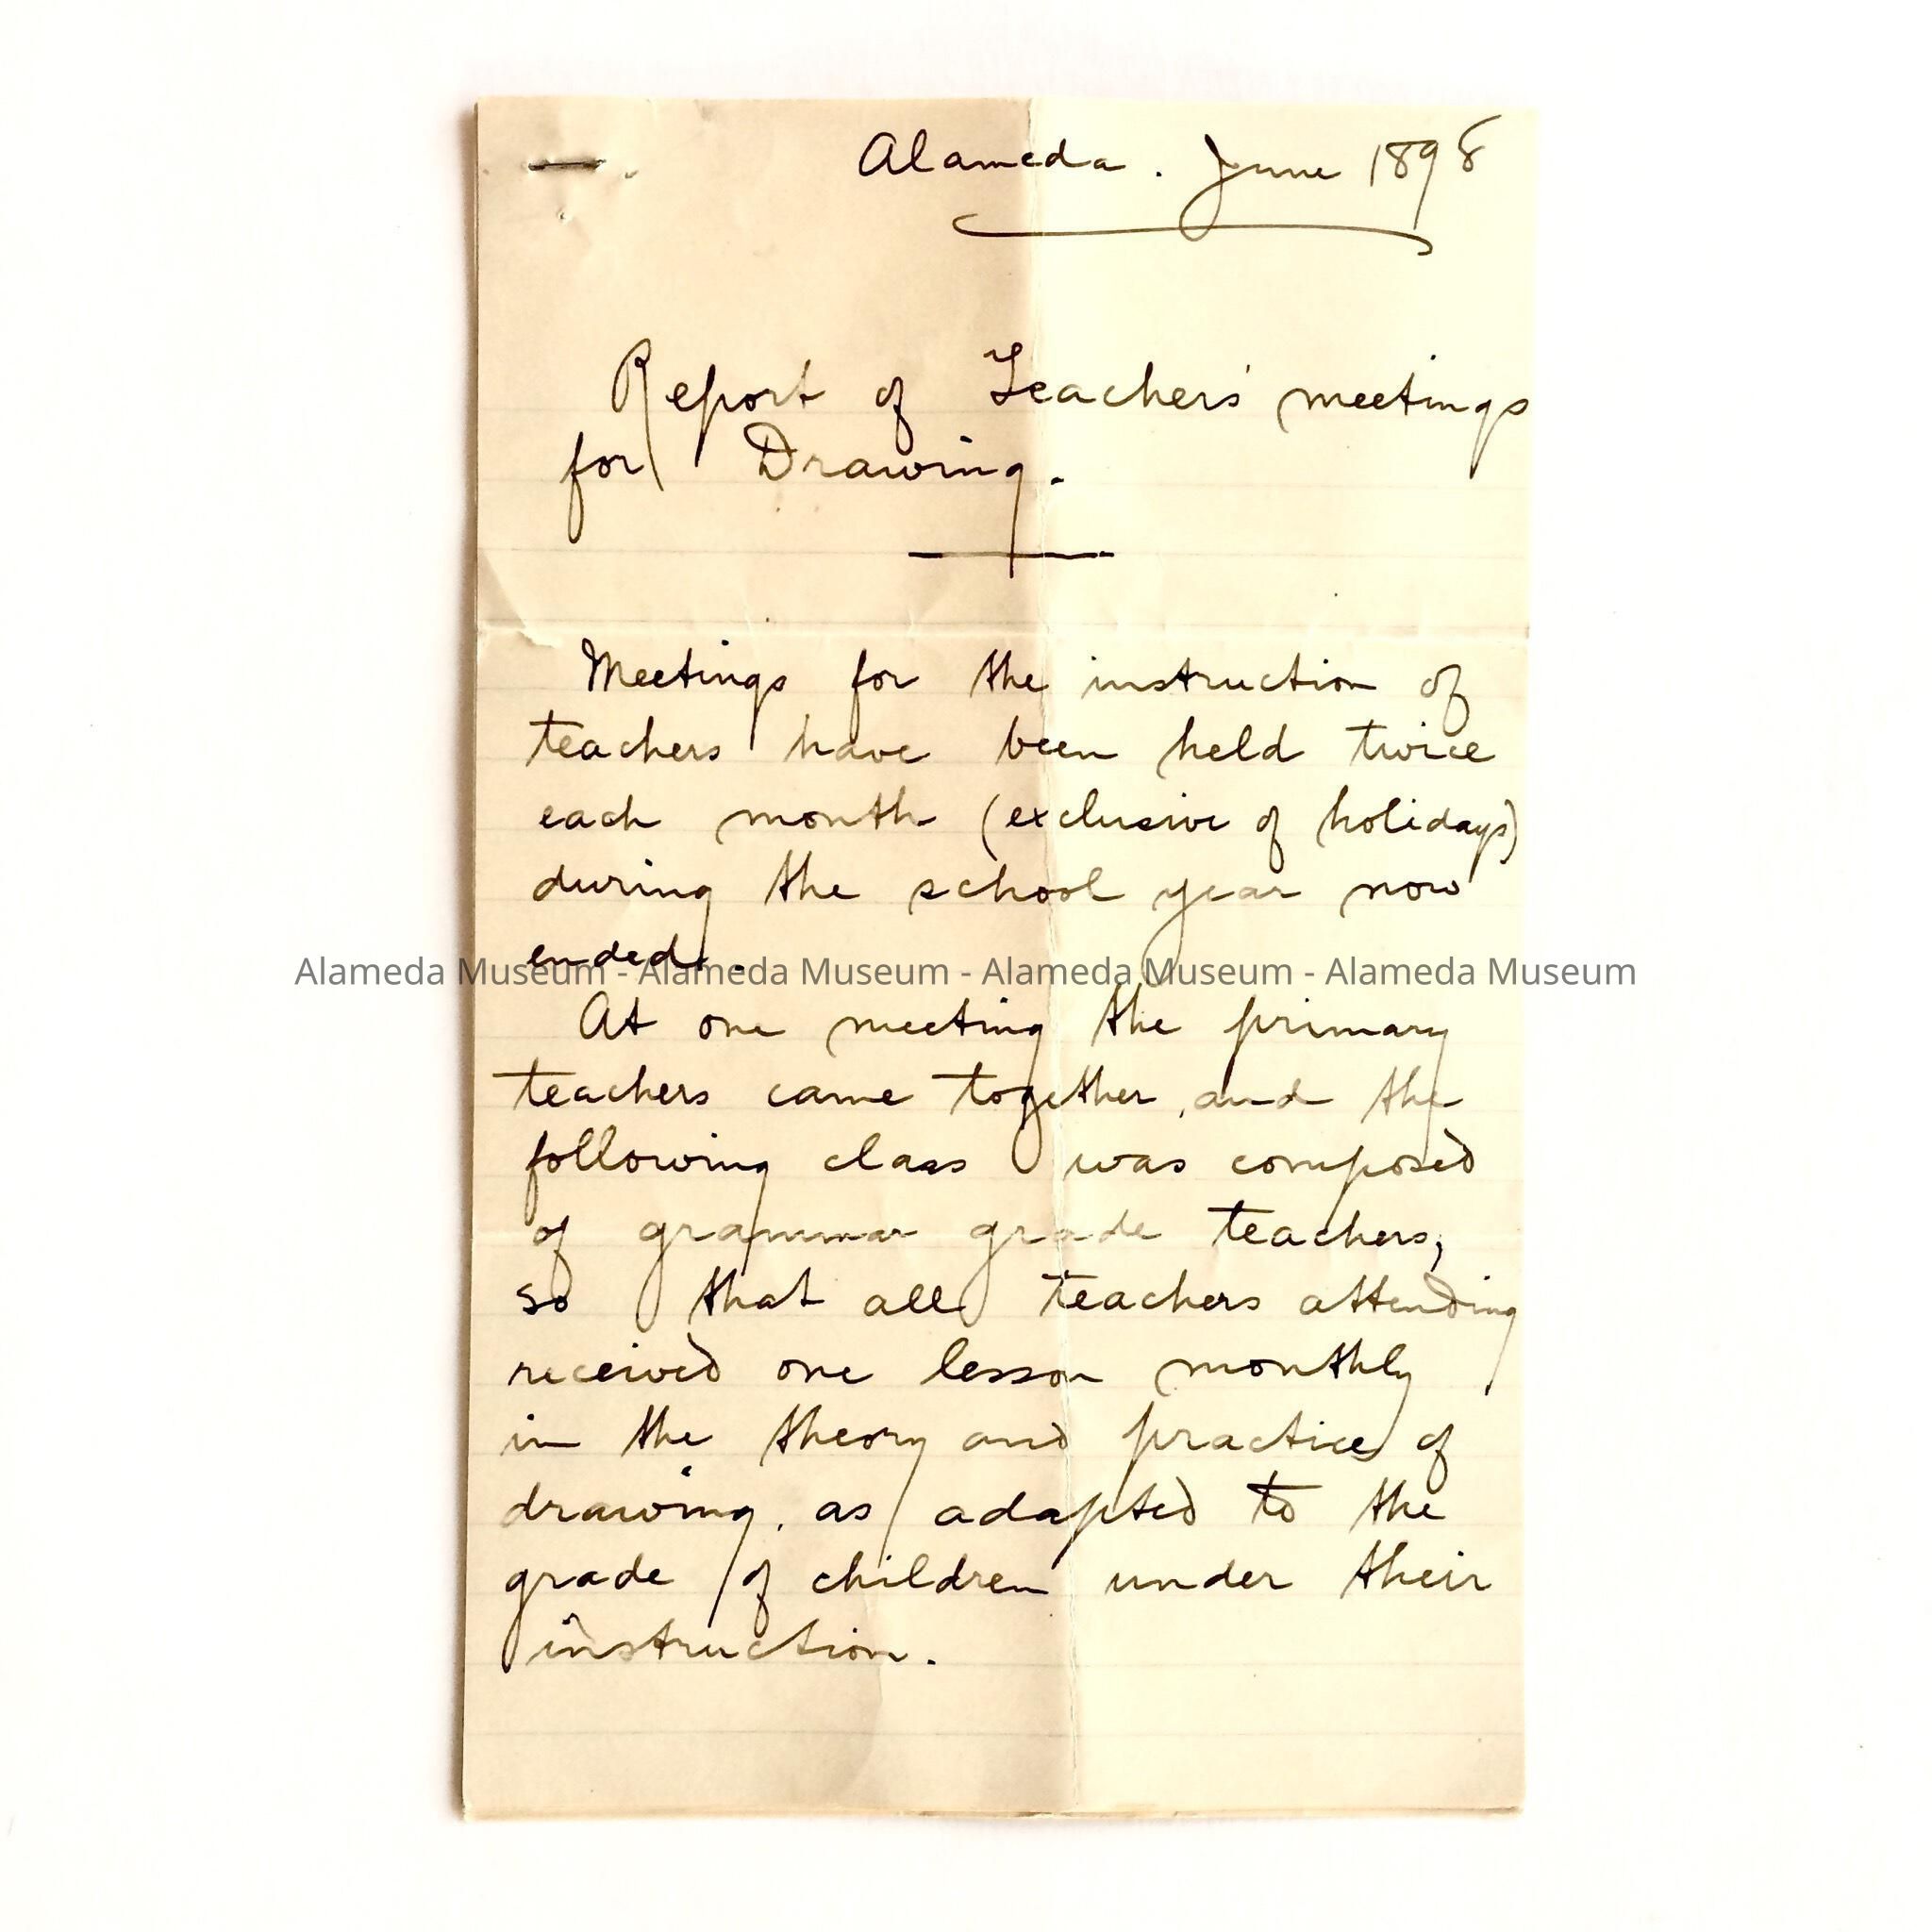 Alameda. June 1898
Report of Teachers' meetings
for Drawing.
Meetings for the instruction of
teachers have been held twice
each month (exclusive of holidays)
during the school year now
ended.
Alameda Museum - Alameda Museum - Alameda Museum - Alameda Museum
At one meeting the primary
teachers came together, and the
following class was composed
of grammar grade teachers,
so that all teachers attending
received one lesson monthly
in the theory and practice of
drawing, as adapted to the
grade of children under their
instruction.